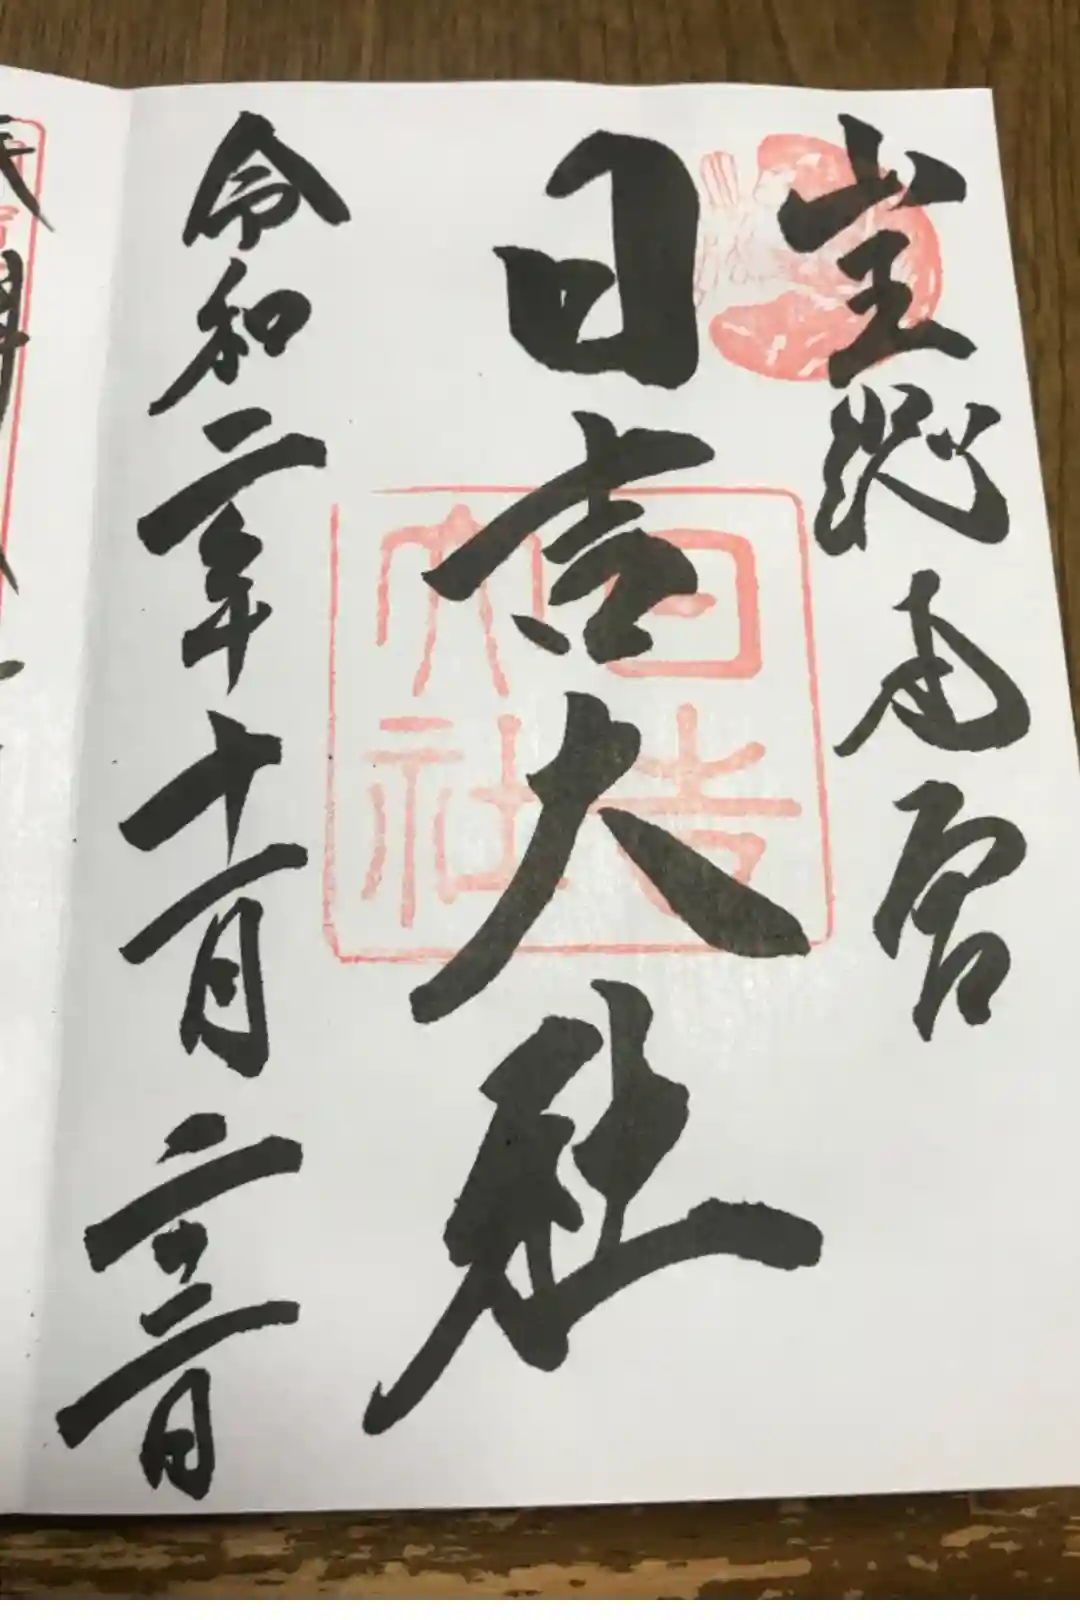 山王総本宮
日吉大社
令和二年十一月二三日
日吉
大社